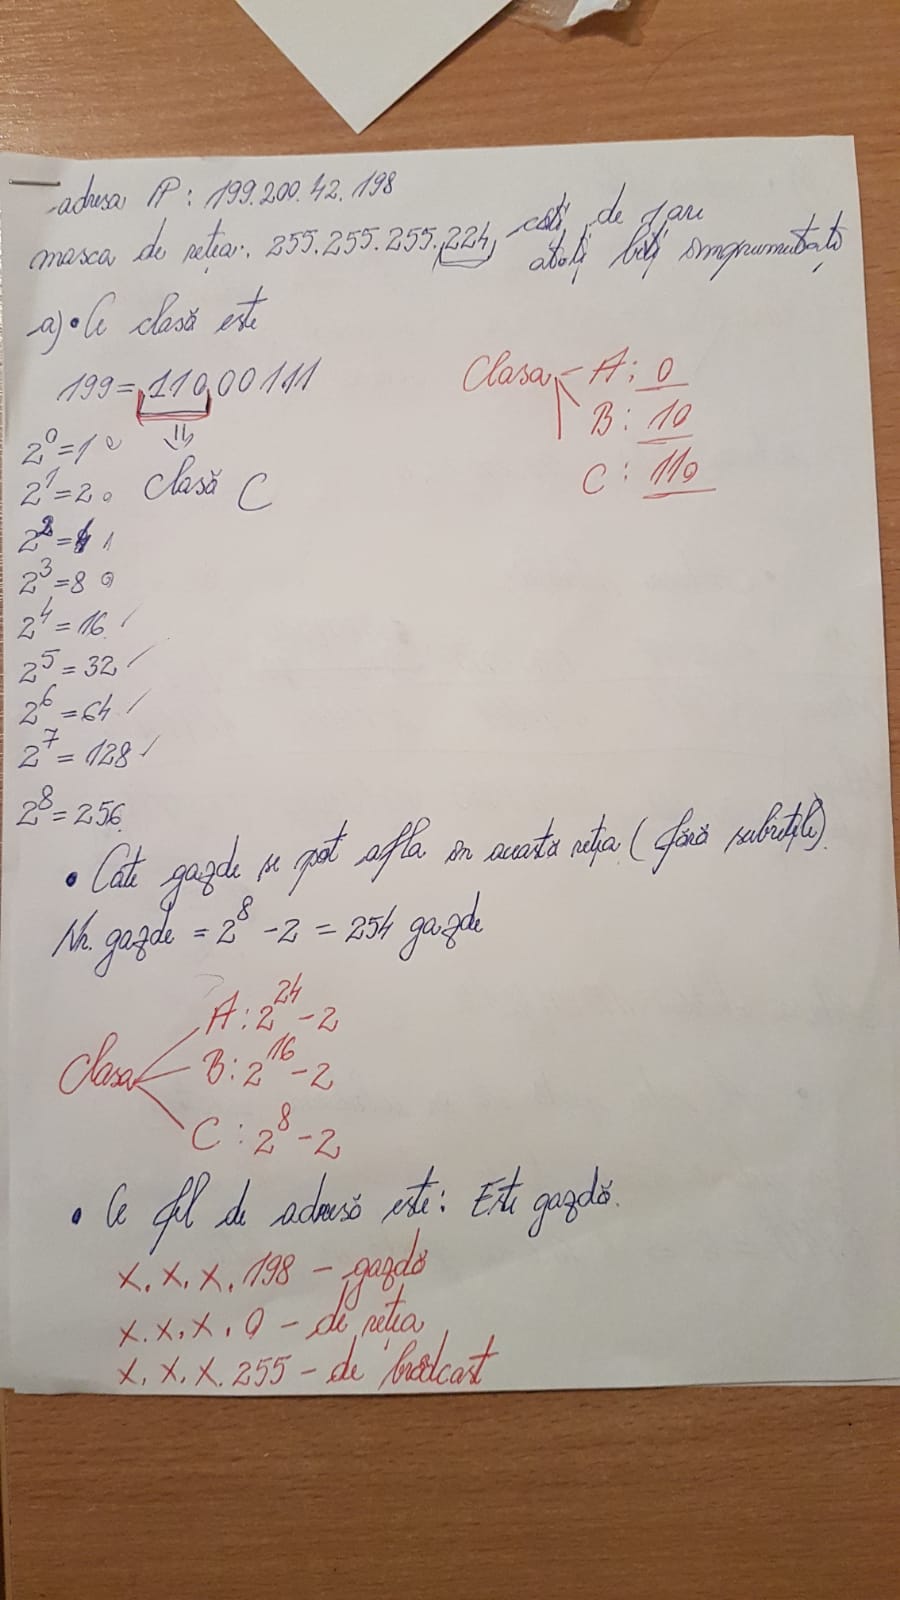 adresa IP: 199.200.42.198
masca de rețea: 255.255.255.224, câți de 1 are
atâți biți împrumutați
a) • Ce clasă este
199 = 110.00111
⇓
clasă C
Clasa A: 0
B: 10
C: 110
2^0 = 1 0
2^1 = 2 0
2^2 = 4 1
2^3 = 8 0
2^4 = 16 /
2^5 = 32 /
2^6 = 64 /
2^7 = 128 /
2^8 = 256
• Câte gazde se pot afla în această rețea (fără subrețele)
Nr. gazde = 2^8 - 2 = 254 gazde
Clasa A: 2^24 - 2
B: 2^16 - 2
C: 2^8 - 2
• Ce fel de adresă este: Este gazdă.
X.X.X.198 - gazdă
X.X.X.0 - de rețea
X.X.X.255 - de